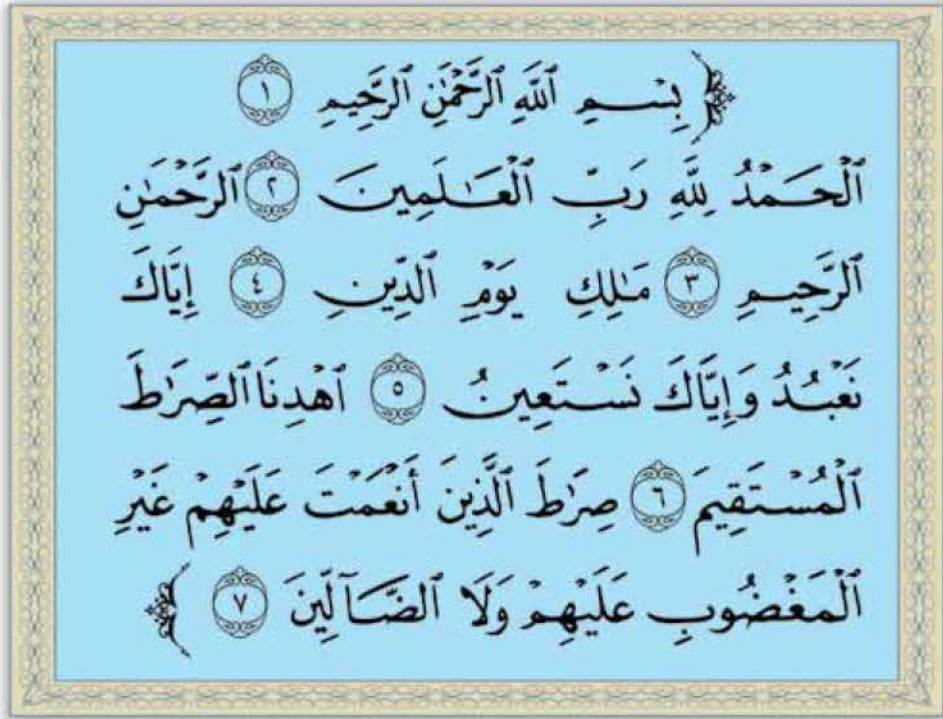 ﴿ بِسْمِ ٱللَّهِ ٱلرَّحْمَٰنِ ٱلرَّحِيمِ ١
ٱلْحَمْدُ لِلَّهِ رَبِّ ٱلْعَـٰلَمِينَ ٢ ٱلرَّحْمَـٰنِ
ٱلرَّحِيمِ ٣ مَـٰلِكِ يَوْمِ ٱلدِّينِ ٤ إِيَّاكَ
نَعْبُدُ وَإِيَّاكَ نَسْتَعِينُ ٥ ٱهْدِنَا ٱلصِّرَٰطَ
ٱلْمُسْتَقِيمَ ٦ صِرَٰطَ ٱلَّذِينَ أَنْعَمْتَ عَلَيْهِمْ غَيْرِ
ٱلْمَغْضُوبِ عَلَيْهِمْ وَلَا ٱلضَّآلِّينَ ٧ ﴾